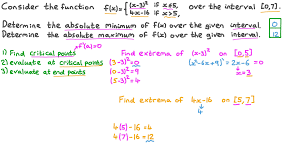 Consider the function f(x) = { (x-3)² if x≤5, 4x-16 if x>5, over the interval [0,7].
Determine the absolute minimum of f(x) over the given interval. 0
Determine the absolute maximum of f(x) over the given interval. 12
f'(x)=0
1) Find critical points
2) evaluate at critical points
3) evaluate at end points
Find extrema of (x-3)² on [0,5]
(3-3)²=0
(0-3)²=9
(5-3)²=4
(x²-6x+9)'=2x-6=0
x=3
Find extrema of 4x-16 on [5,7]
4
4(5)-16=4
4(7)-16=12